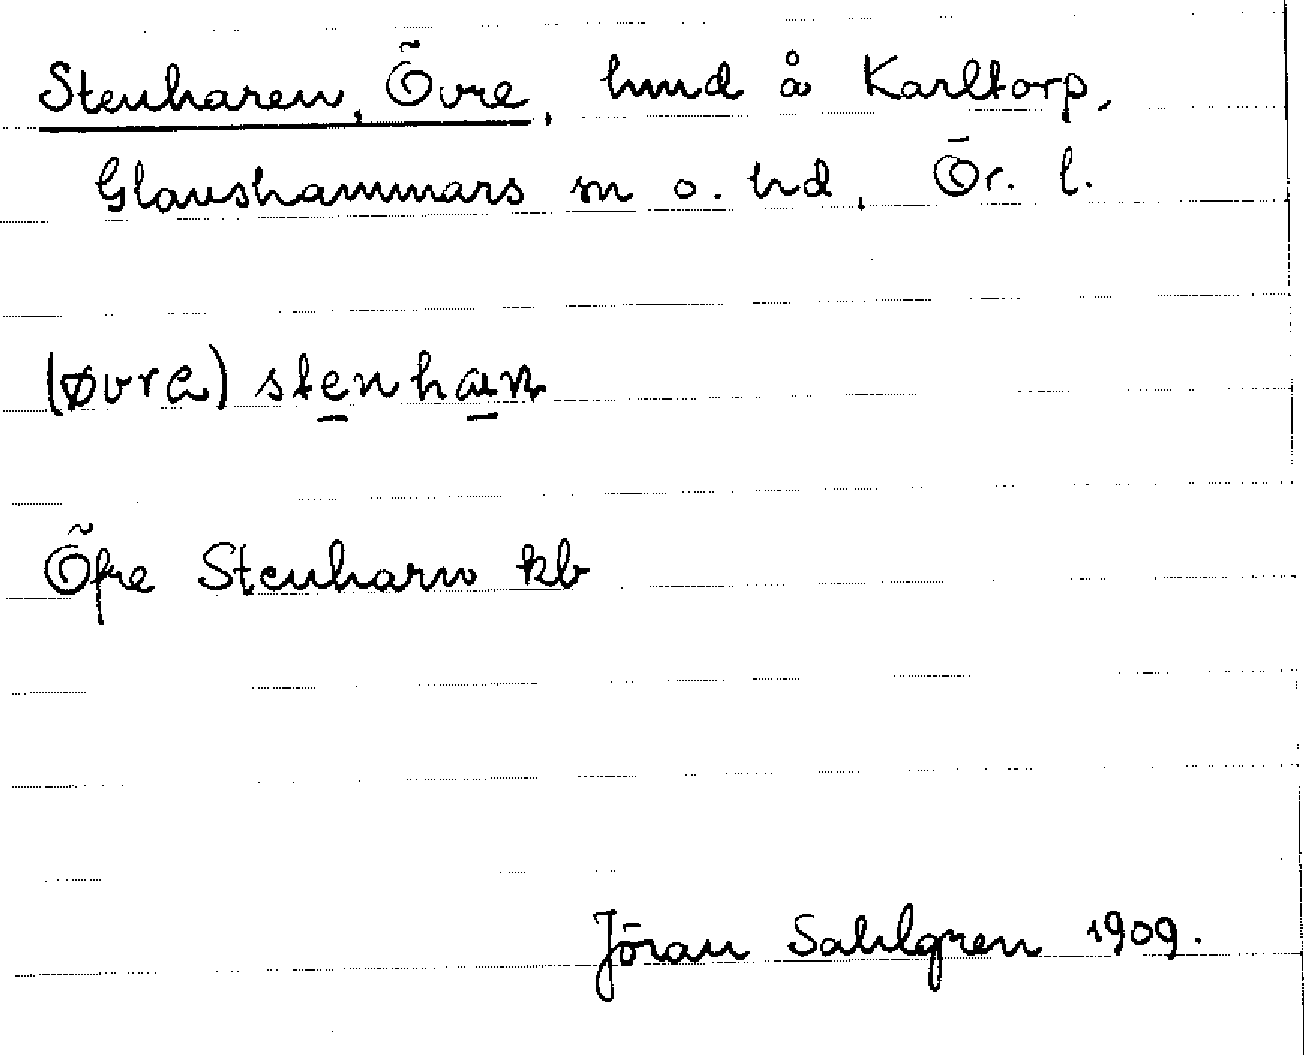 Stenharen, Övre, lmd å Karltorp,
Glanshammars sn o. hd, Ör. l.
(øvre) stenharn
Öfre Stenharn kb
Jöran Sahlgren 1909.